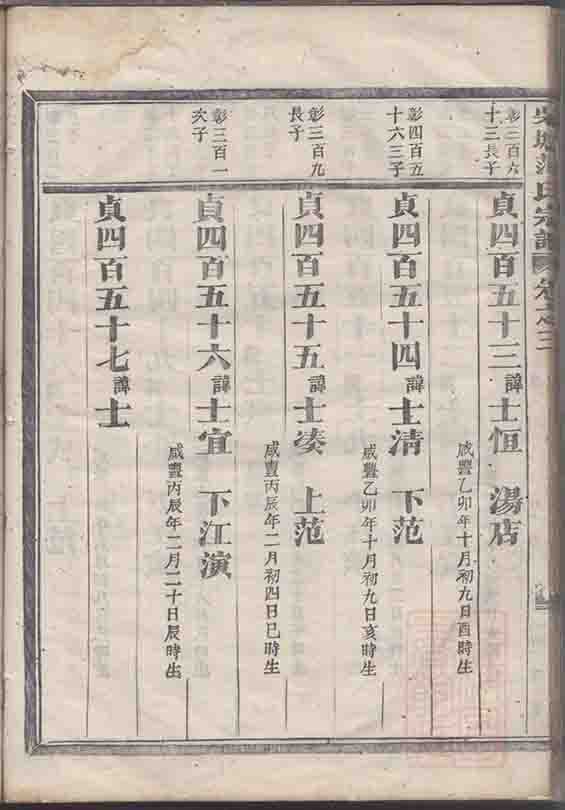 吳塘范氏宗譜 卷之三
彰三百六十三長子
貞四百五十三諱士恒 湯店
咸豐乙卯年十月初九日酉時生
彰四百五十六三子
貞四百五十四諱士清 下范
咸豐乙卯年十月初九日亥時生
彰三百九長子
貞四百五十五諱士湊 上范
咸豐丙辰年二月初四日巳時生
彰三百一次子
貞四百五十六諱士宜 下江演
咸豐丙辰年二月二十日辰時生
貞四百五十七諱士